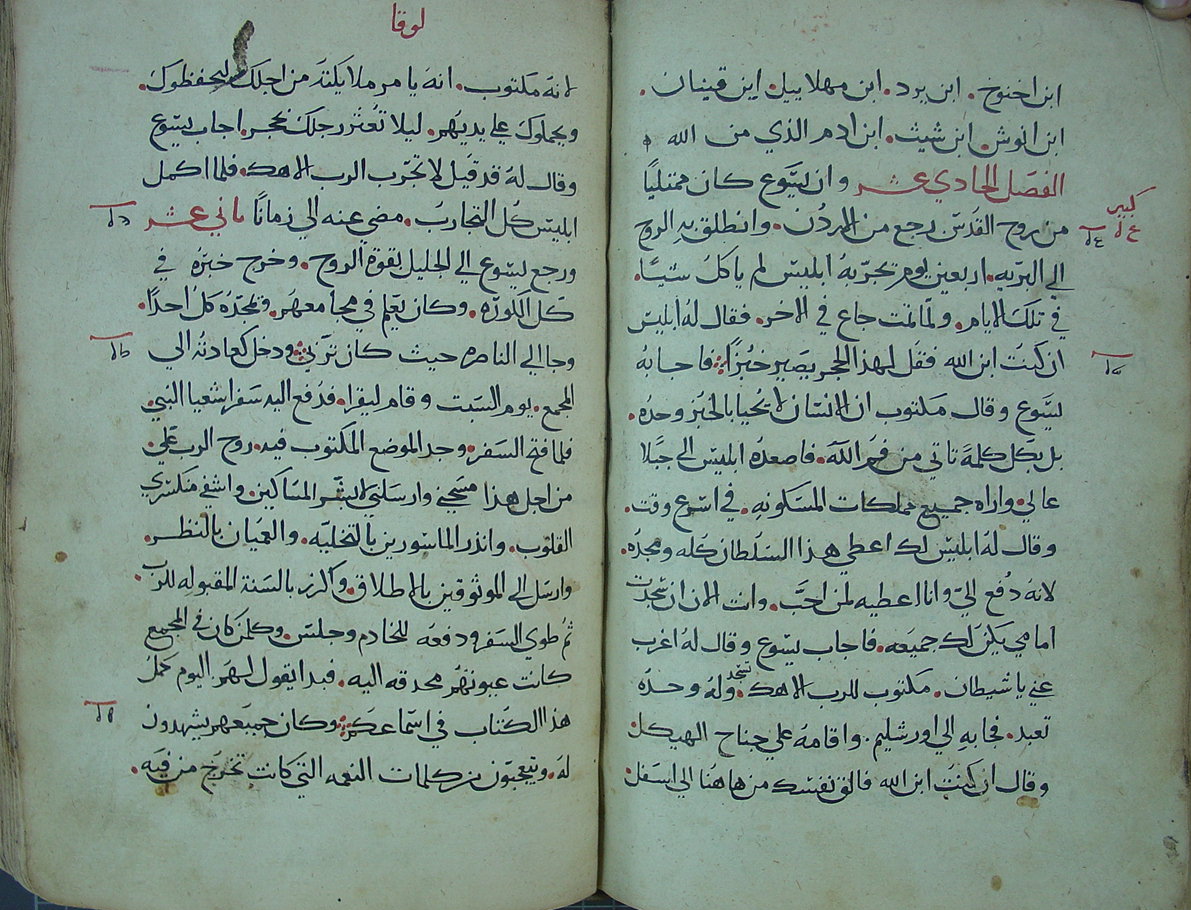 ابن اخنوخ. ابن يرد. ابن مهلاييل. ابن قينان.
ابن انوش. ابن شيث. ابن ادم الذي من الله
الفصل الحادي عشر وان ليسوع كان ممتلياً
كبير
من روح القُدس رجع من الاردُن. وانطلق بهِ الروح
الي البريه. اربعين يوم يُجرّبهُ ابليس لم ياكلُ شيئًا.
في تلك الايام. ولما تمت جاع في الاخر. فقال لهُ ابليس
ان كنتُ ابن الله فقل لهذا الحجر يصير خبزًا. فاجابهُ
يسَّوع وقال مكتوب ان الانسان لا يحيا بالخبز وحدُه.
بل بكل كلمة تاتي من فمِ الله. فاصعدُه ابليس الي جبلا
عالي. واراه جميع مملكات المسكونهِ. في اسرع وقت.
وقال لهُ ابليس لك اعطي هذا السلطان كله ومجدُه.
لانهُ دُفع اليّ وانا اعطيه لمن احبّ. وانت الان ان سجدت
امامي يكنَّ لك جميعه. فاجاب يسّوع وقال لهُ اغرب
عني يا شيطان. مكتوب للرب الاهك تسجد. ولهُ وحدُه
تعبد. فجا بهِ الي اورشليم. واقامهُ علي جناح الهيكل.
وقال ان كنتُ ابن الله فالق نفسك من هاهُنا الي اسفل.
لوقا
لانهُ مكتوب. انهُ يامر ملايكتهُ من اجلك ليحفظوك.
ويحملوك علي يديهُم. ليلا تُعثر رجلك بحجر. اجاب يسّوع
وقال لهُ قد قيل لا تجرّب الرب الاهك. فلما اكمل
ابليس كُل التجاربُ. مضي عنه الي زمانًا ثاني عشر
ورجع يسّوع الي الجليل بقوة الروح. وخرج خبرُه في
كل الكورَه. وكان يعّلم في مجامعهُم. ويمجدُه كلُ احدًا.
وجا الي الناصره حيث كان تربيَ ودخل كعادتهُ الي
المجمع. يوم السَبت وقام ليقرا. فدُفع اليه سَفر اشعيا النبي.
فلما فتح السَفر. وجد الموضع المكتوب فيه. روح الرب عَلي.
من اجل هذا مسَحني وارسَلني لابشّر المسَاكين. واشفي منكسَري
القلوب. وانذر الماسَورين بالتخليَه. والعميان بالنظر.
وارسَل الي الموثوقين بالاطلاق. واكرز بالسَنة المقبولهِ للربّ
ثمُ طوي السَفر ودفعَه للخادم وجلسَ. وكلمَن كان في المجمع
كانت عيونهُم محدقه اليه. فبدا يقول لهَم اليوم كملُ
هذا الكتاب في اسَماعكم. وكان جميعهم يشهدون
لهُ. ويتعجّبون من كلمات النعمه التي كانت تخرج من فيَه.